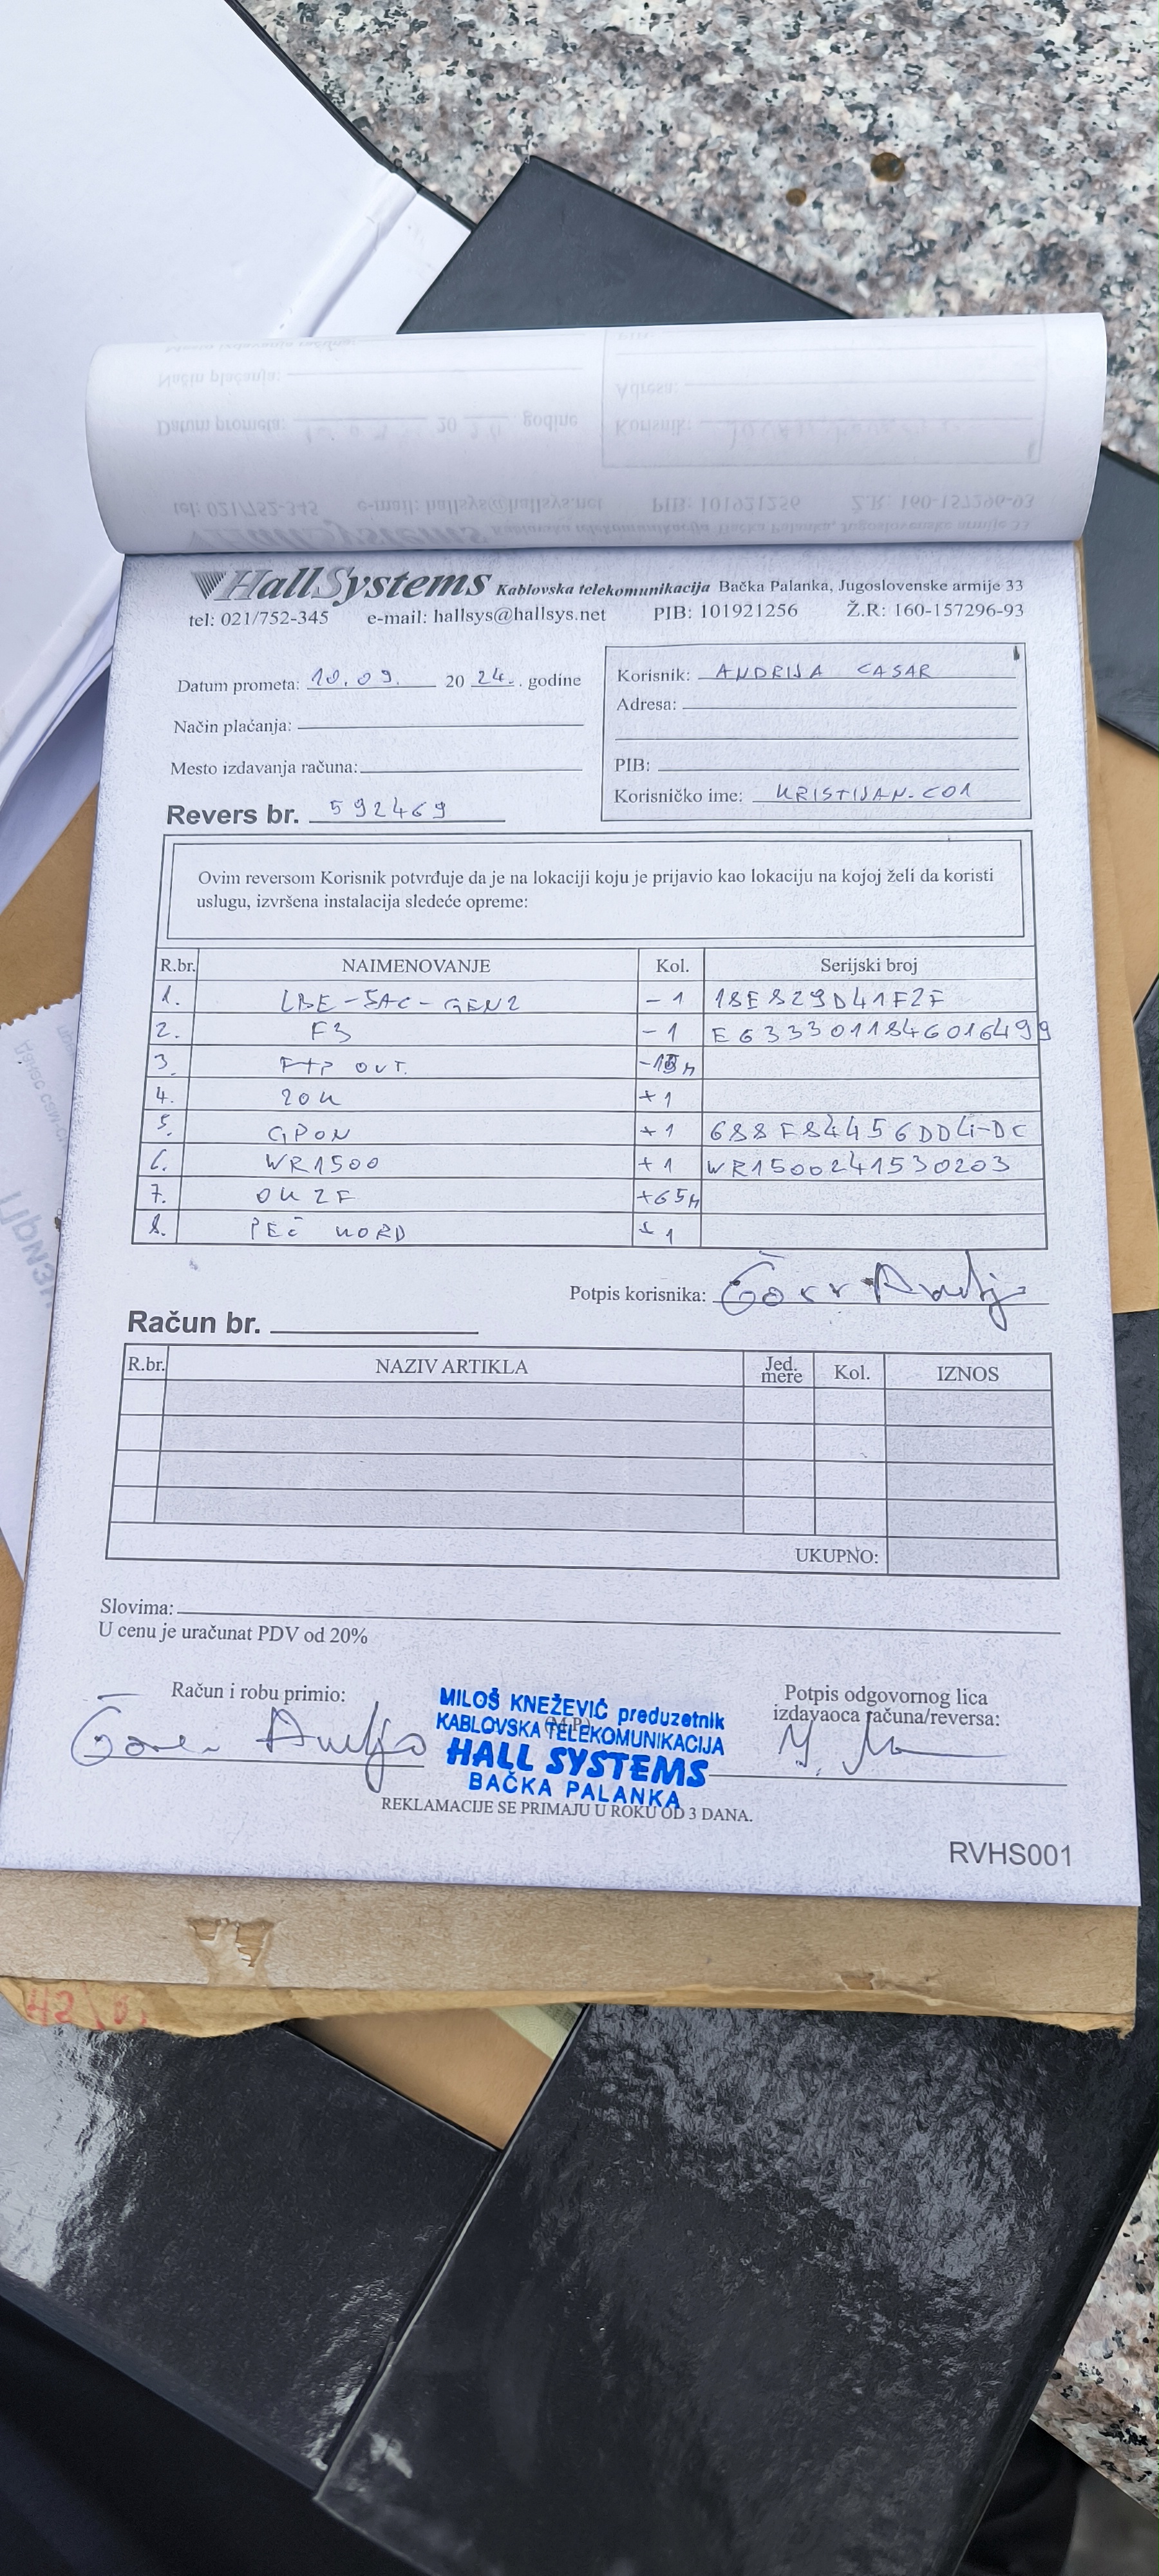 HallSystems Kablovska telekomunikacija Bačka Palanka, Jugoslovenske armije 33
tel: 021/752-345 e-mail: hallsys@hallsys.net PIB: 101921256 Ž.R: 160-157296-93
Datum prometa: 10.09. 20 24. godine
Način plaćanja:
Mesto izdavanja računa:
Revers br. 592469
Korisnik: ANDRIJA CASAR
Adresa:
PIB:
Korisničko ime: KRISTIJAN.C01
Ovim reversom Korisnik potvrđuje da je na lokaciji koju je prijavio kao lokaciju na kojoj želi da koristi
uslugu, izvršena instalacija sledeće opreme:
R.br. NAIMENOVANJE Kol. Serijski broj
1. LBE-5AC-GEN2 -1 18E829D41F2F
2. F3 -1 E6333011846016499
3. FTP OUT.
4. ZOK +1
5. GPON +1
6. WR1500 +1 WR1500241530203
7. OK 2F +65M
8. PEČ NORD +1
Potpis korisnika:
Račun br.
R.br. NAZIV ARTIKLA Jed. mere Kol. IZNOS
UKUPNO:
Slovima:
U cenu je uračunat PDV od 20%
Račun i robu primio:
(M.P.)
MILOŠ KNEŽEVIĆ preduzetnik
KABLOVSKA TELEKOMUNIKACIJA
HALL SYSTEMS
BAČKA PALANKA
Potpis odgovornog lica
izdavaoca računa/reversa:
REKLAMACIJE SE PRIMAJU U ROKU OD 3 DANA.
RVHS001